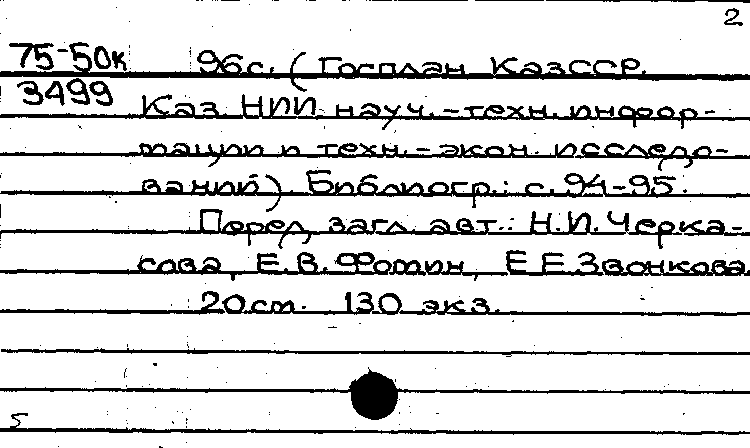 2
75-50к 96с. (Госплан КазССР.
3499 Каз НИИ науч.-техн. инфор-
мации и техн.-экон. исследо-
ваний). Библиогр.: с. 94-95.
Перед загл. авт.: Н.И. Черка-
сова, Е.В. Фотин, Е Е Звонкова.
20см. 130 экз.
5